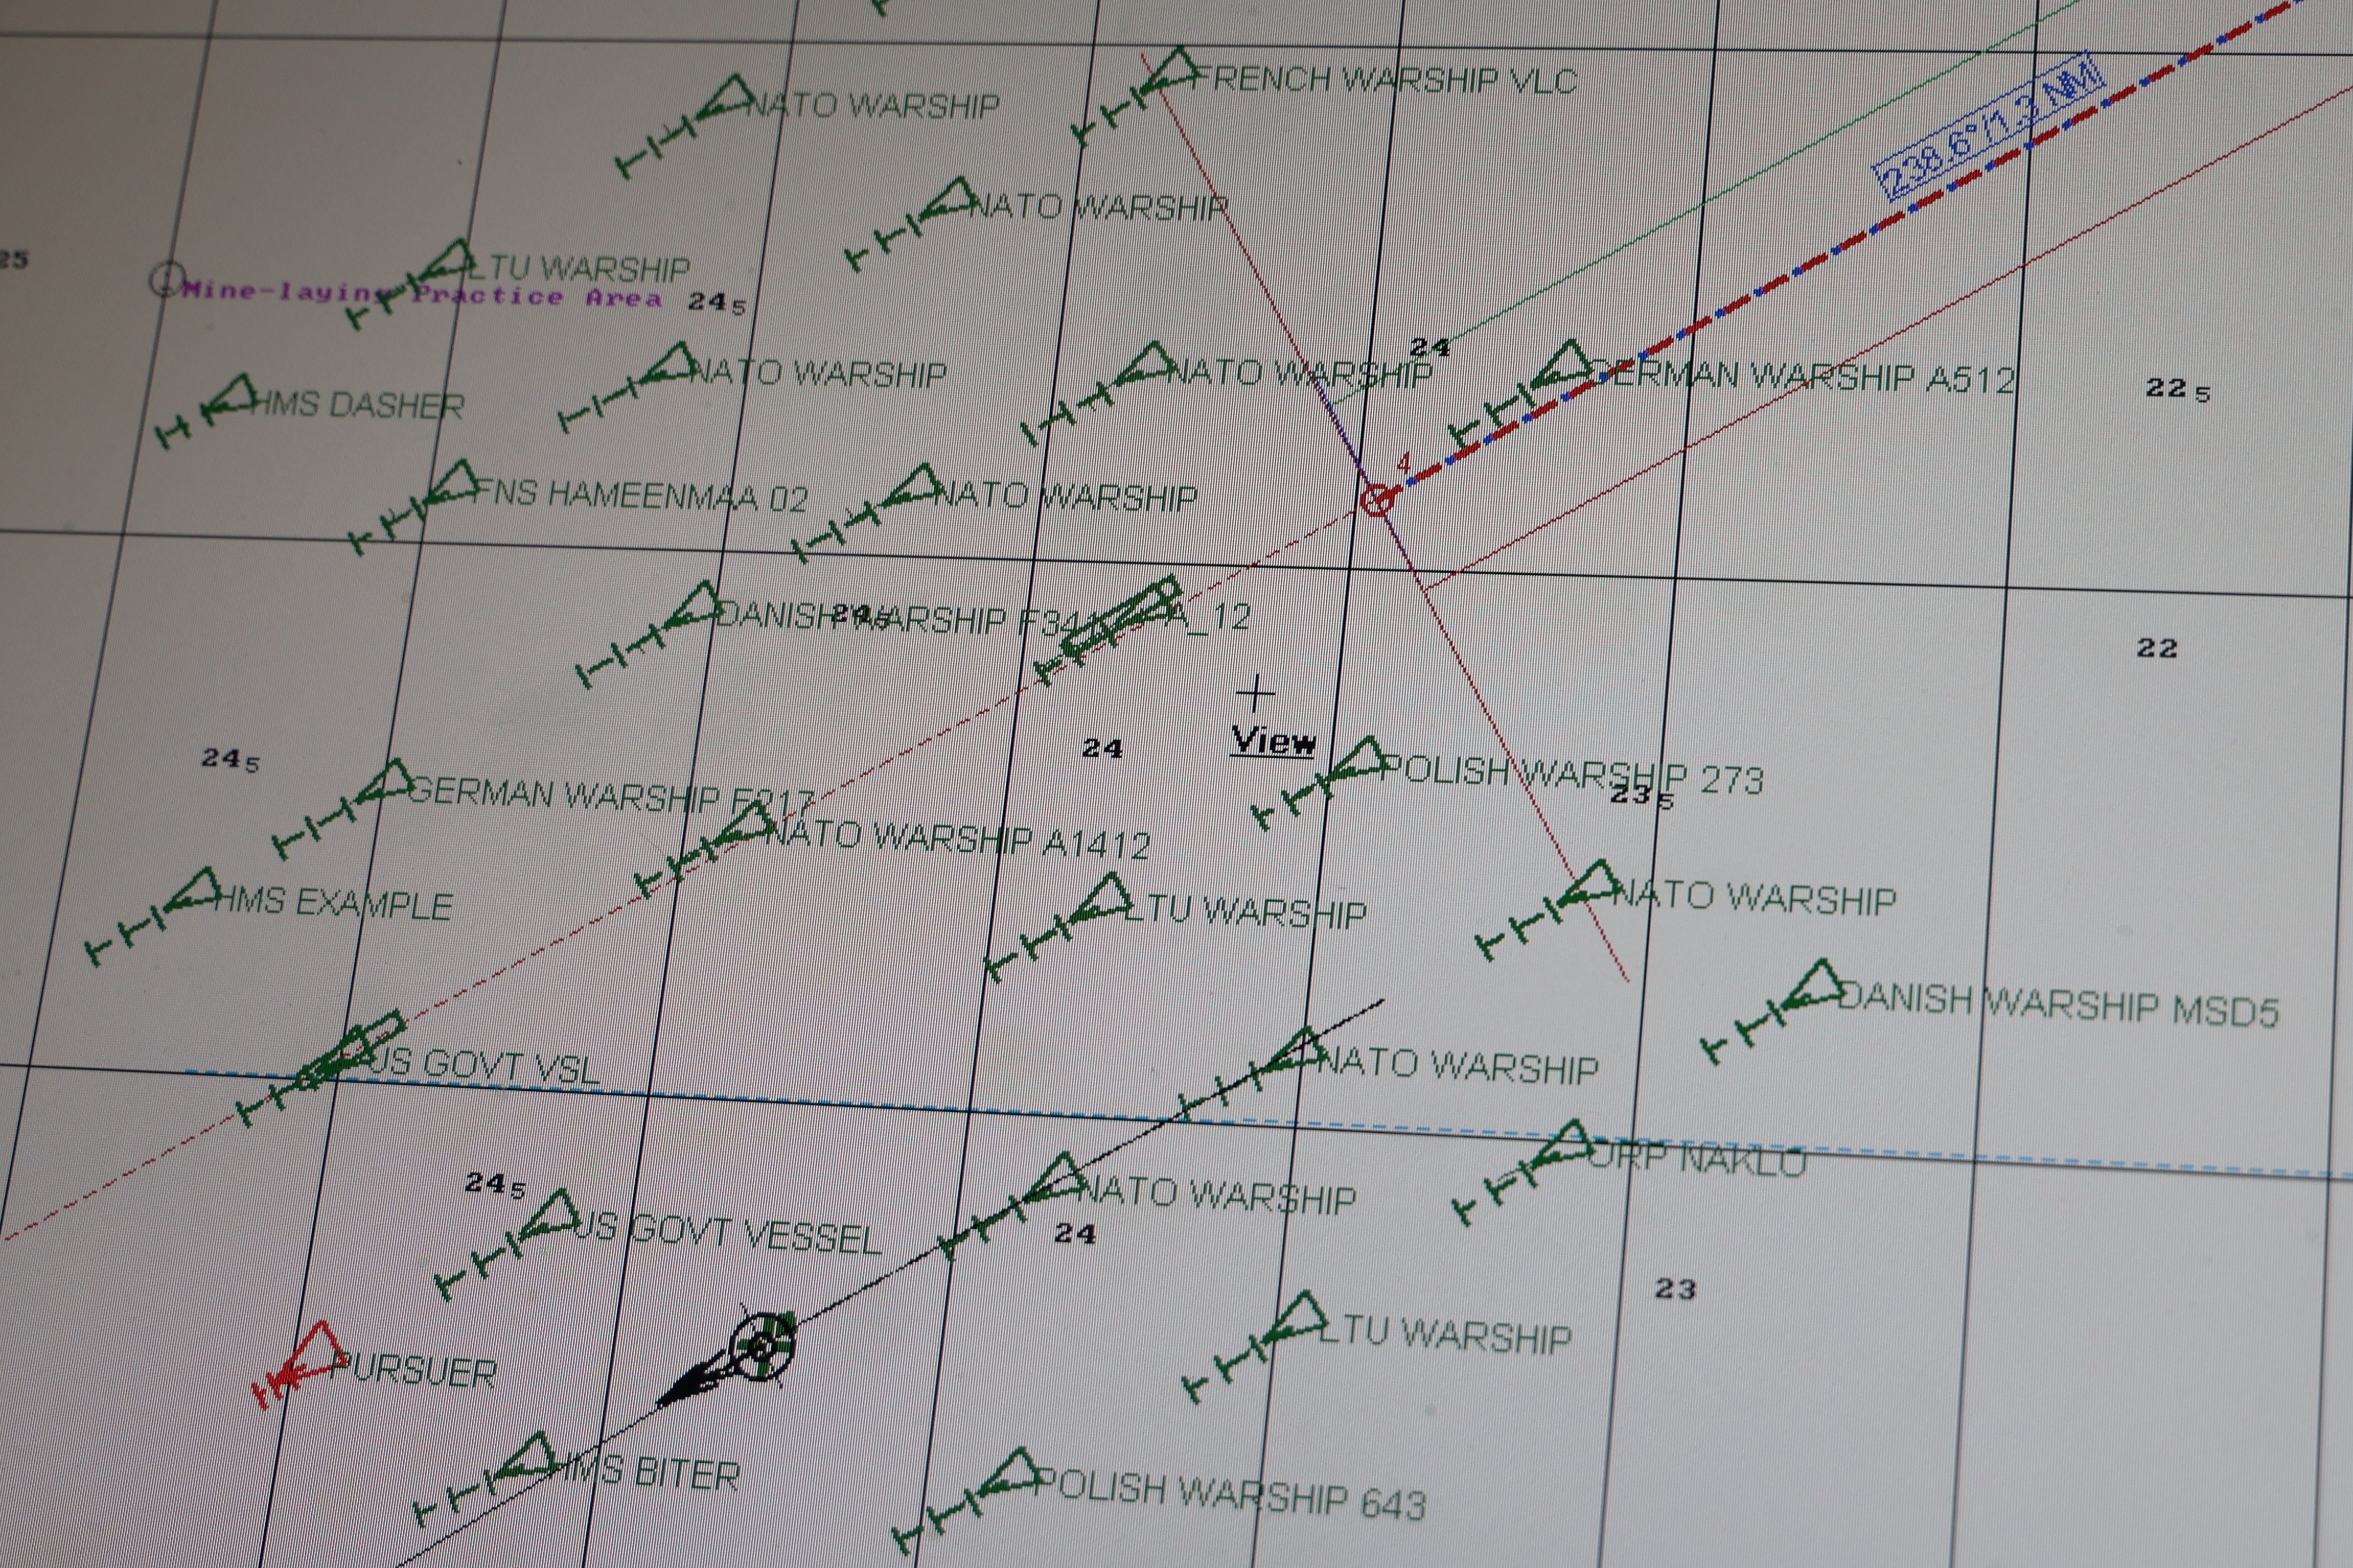 FRENCH WARSHIP VLC
238.6°/1.3 NM
NATO WARSHIP
NATO WARSHIP
25
LTU WARSHIP
Mine-laying Practice Area
24 5
24
NATO WARSHIP
NATO WARSHIP
GERMAN WARSHIP A512
22 5
HMS DASHER
4
FNS HAMEENMAA 02
NATO WARSHIP
DANISH WARSHIP
A_12
22
View
24
24 5
POLISH WARSHIP 273
23 5
GERMAN WARSHIP F217
NATO WARSHIP A1412
HMS EXAMPLE
LTU WARSHIP
NATO WARSHIP
DANISH WARSHIP MSD5
US GOVT VSL
NATO WARSHIP
ORP NAKLO
24 5
NATO WARSHIP
US GOVT VESSEL
24
23
LTU WARSHIP
PURSUER
HMS BITER
POLISH WARSHIP 643